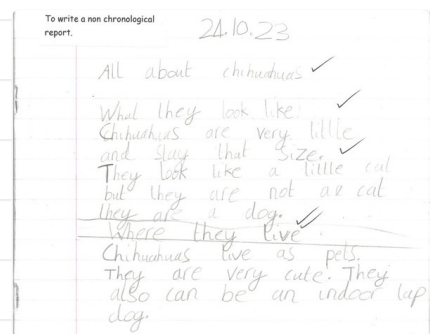 To write a non chronological
report.
24.10.23
All about chihuahuas
What they look like:
Chihuahuas are very little
and stay that size.
They look like a little cat
but they are not a cat
they are a dog.
Where they live
Chihuahuas live as pets.
They are very cute. They
also can be an indoor lap
dog.